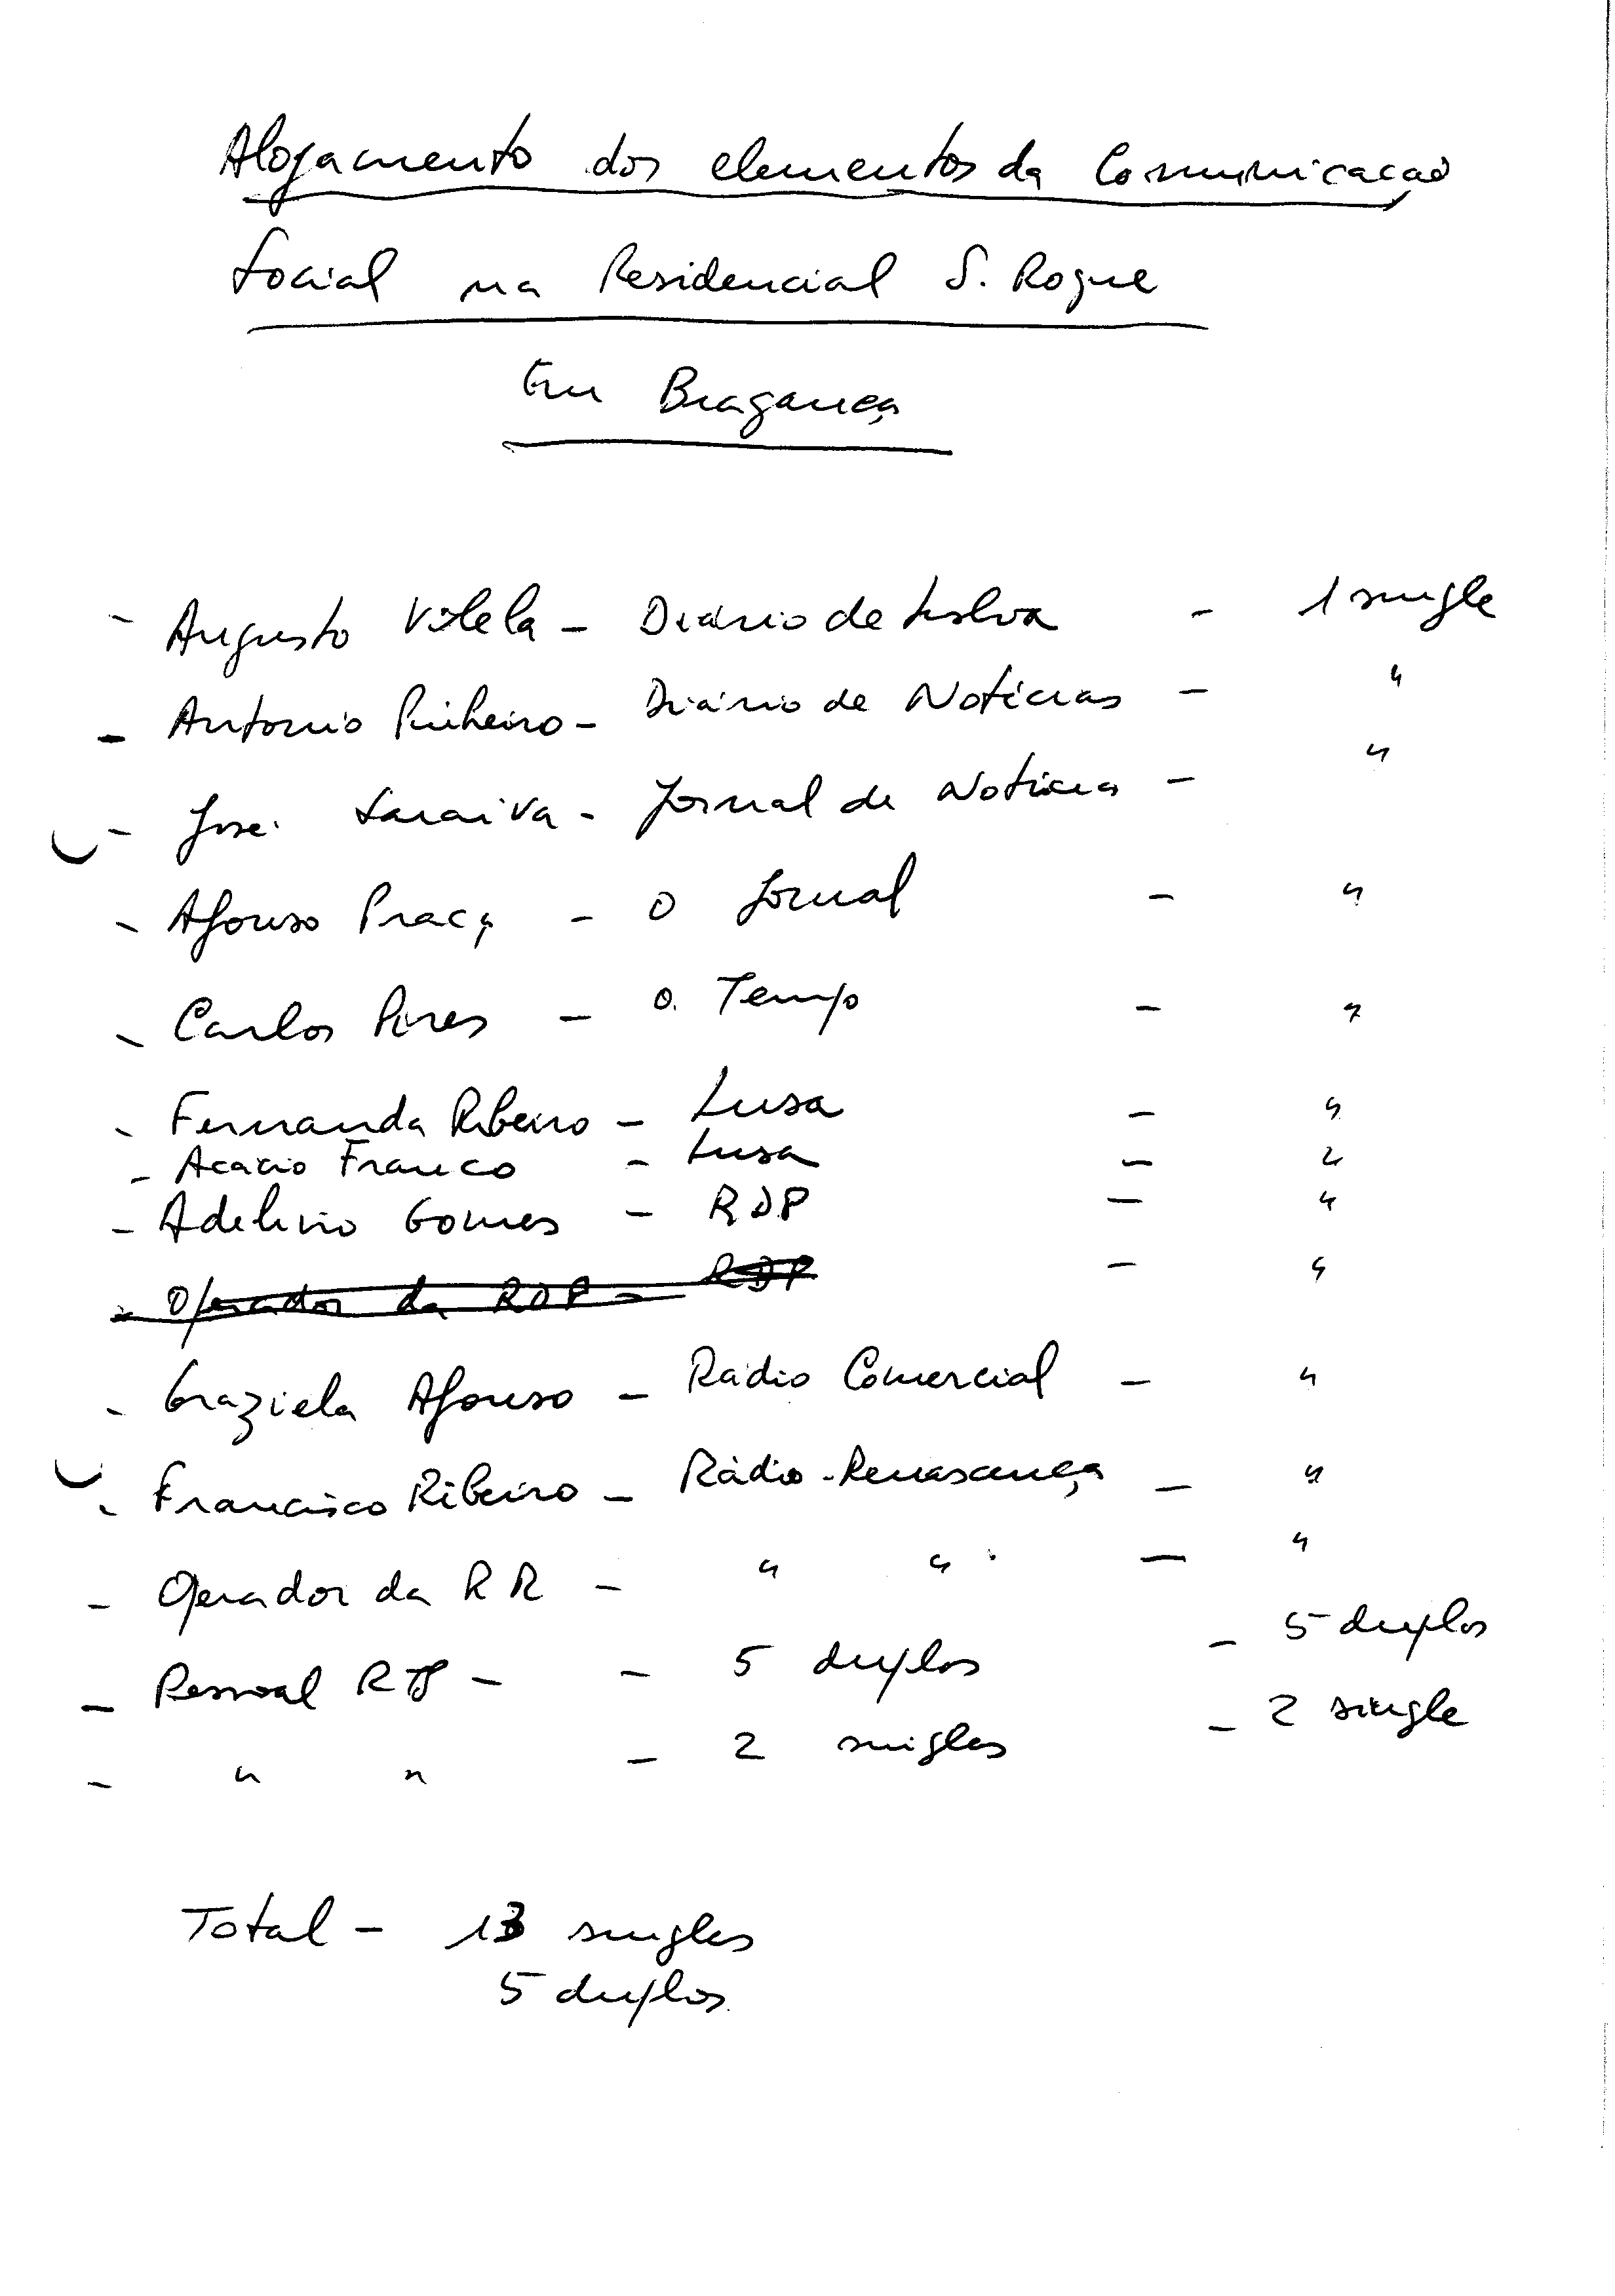 Alojamento dos elementos da Comunicação
Social na Residencial S. Roque
Em Bragança
- Augusto Vilela - Diário de Lisboa - 1 single
- Antonio Pinheiro - Diário de Notícias - "
- José Saraiva - Jornal de Noticias - "
- Afonso Praça - O Jornal - "
- Carlos Pires - O Tempo - "
- Fernanda Ribeiro - Lusa - "
- Acacio Franco - Lusa - "
- Adelino Gomes - RDP - "
- Operador da RDP - RDP - "
- Graziela Afonso - Radio Comercial - "
- Francisco Ribeiro - Rádio-Renascença - "
- Operador da RR - " " - "
- Pessoal RTP - - 5 duplos - 5 duplos
- " " - 2 singles - 2 single
Total - 13 singles
5 duplos